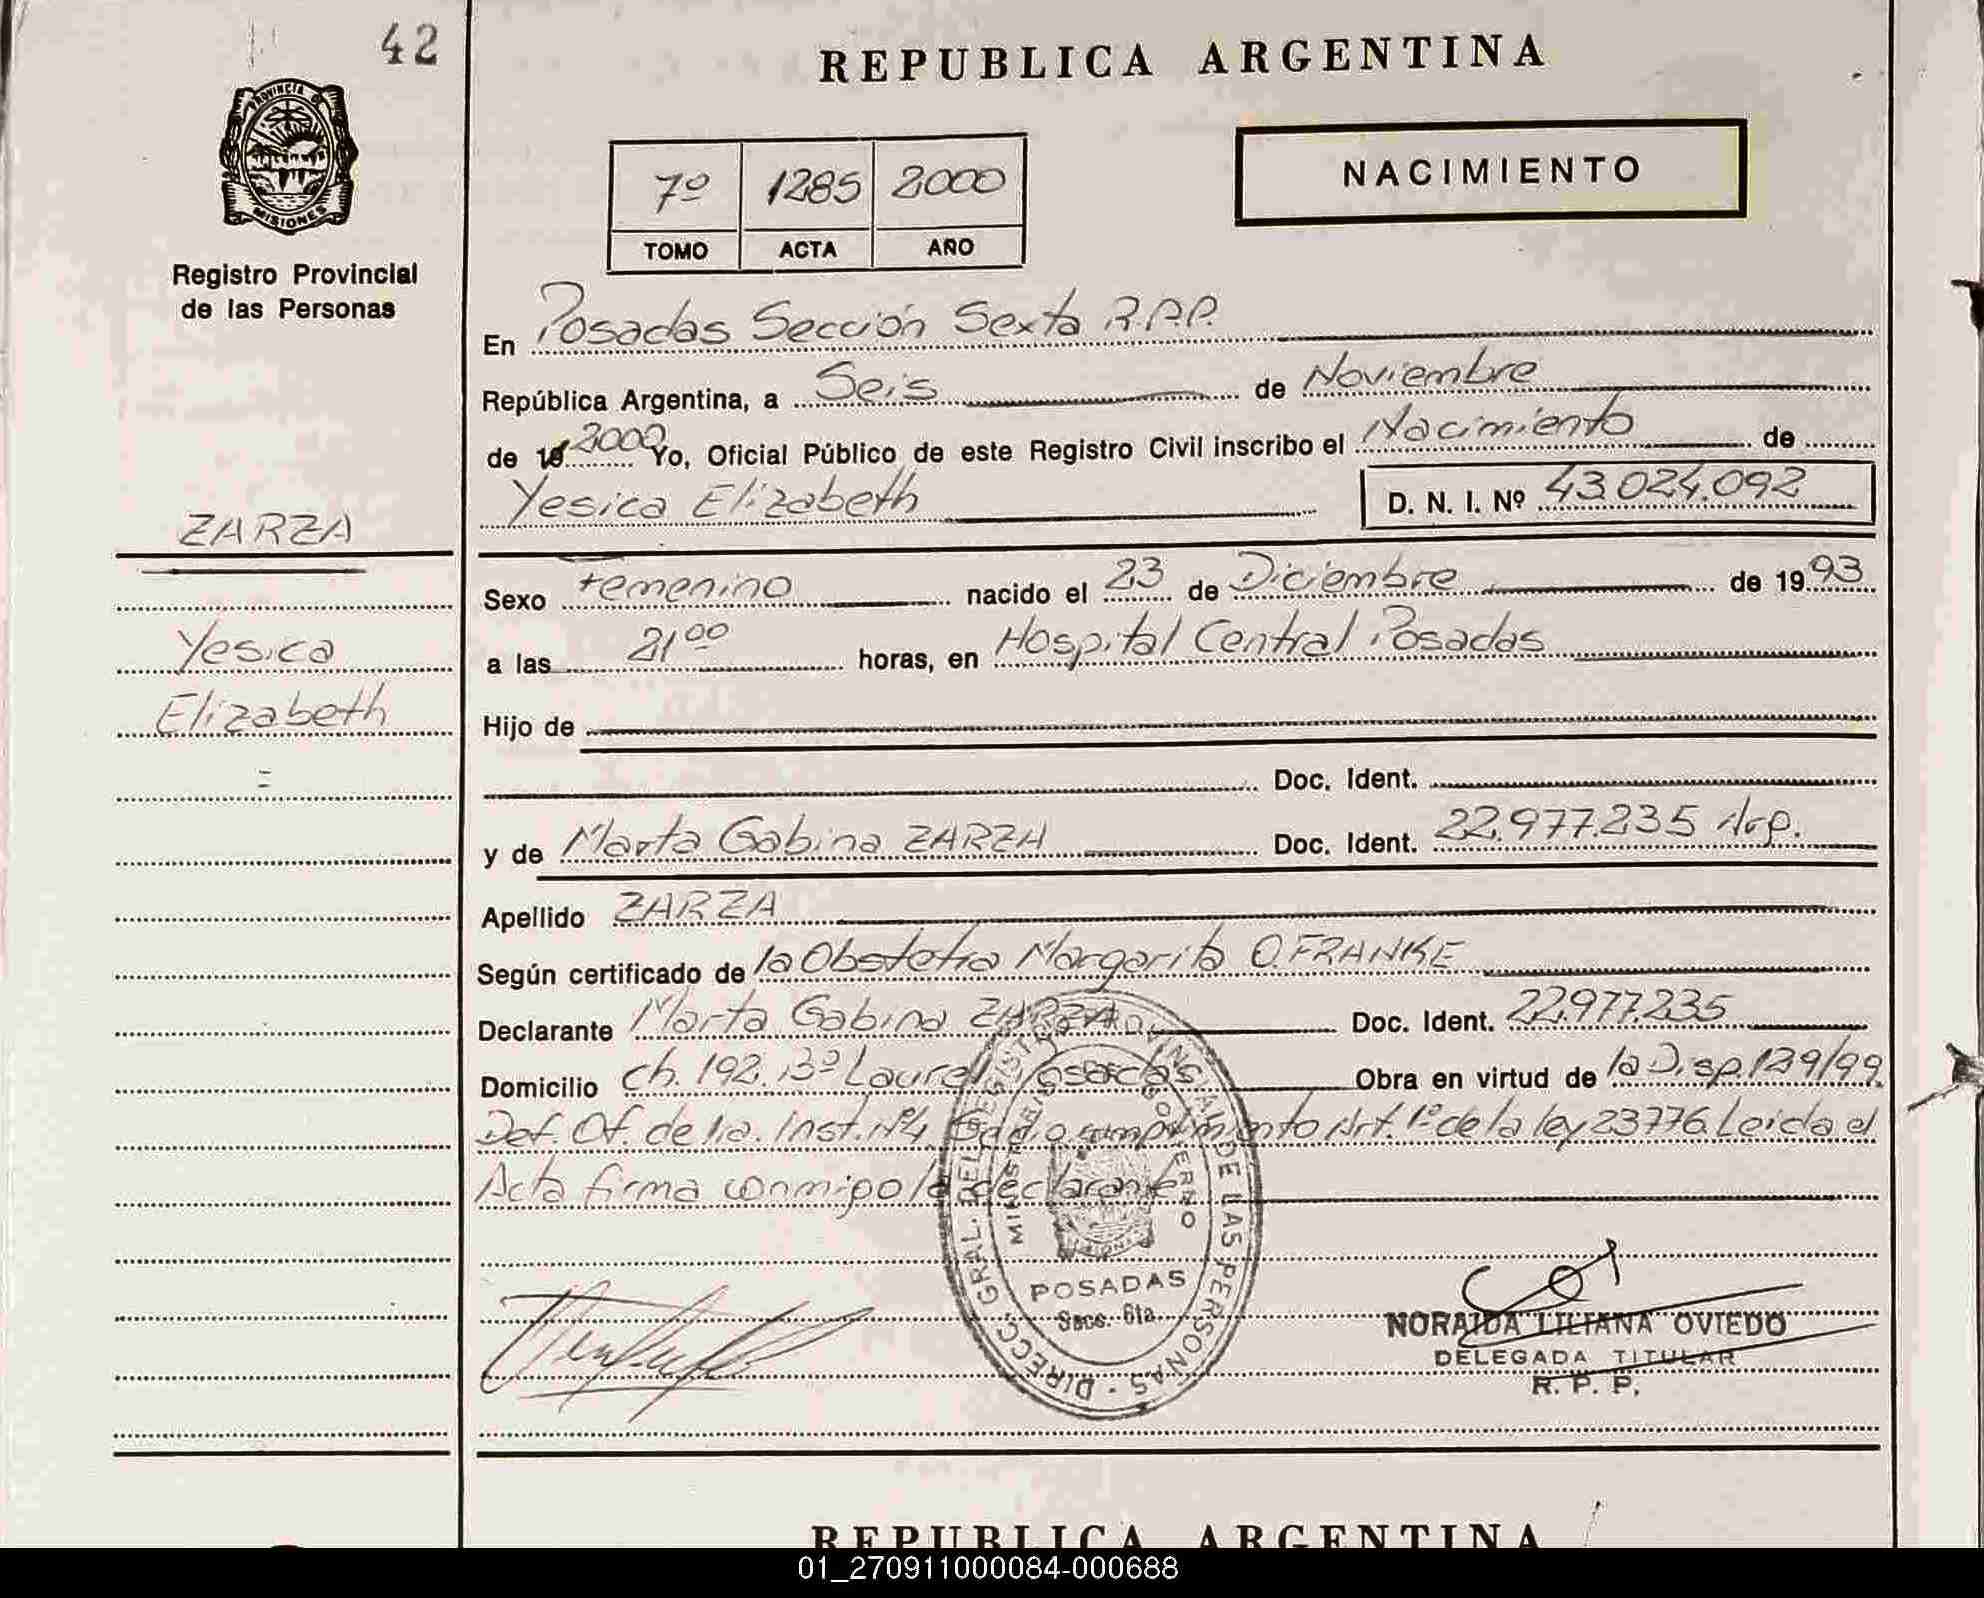 42
REPUBLICA ARGENTINA
PROVINCIA DE
MISIONES
Registro Provincial
de las Personas
7º 1285 2000
TOMO ACTA AÑO
NACIMIENTO
En Posadas Sección Sexta R.P.P.
República Argentina, a Seis de Noviembre
de 19 2000 Yo, Oficial Público de este Registro Civil inscribo el Nacimiento de
Yesica Elizabeth D. N. I. Nº 43.024.092
ZARZA
Yesica
Elizabeth
Sexo Femenino nacido el 23 de Diciembre de 1993
a las 21⁰⁰ horas, en Hospital Central Posadas
Hijo de
Doc. Ident.
y de Marta Gabina ZARZA Doc. Ident. 22.977.235 Arg.
Apellido ZARZA
Según certificado de la Obstetra Margarita O. FRANKE
Declarante Marta Gabina ZARZA Doc. Ident. 22.977.235
Domicilio Ch. 192. Bº Laurel Posadas Obra en virtud de la Disp. 129/99
Def. Of. de 1ra. Inst. Nº4 cumplimiento Art. 1º de la ley 23776. Leida el
Acta firma conmigo la declarante
DIRECC. GRAL. DEL REGISTRO PROVINCIAL DE LAS PERSONAS
MINISTERIO GOBIERNO
POSADAS
Secc. 6ta.
NORAIDA LILIANA OVIEDO
DELEGADA TITULAR
R. P. P.
REPUBLICA ARGENTINA
01_270911000084-000688